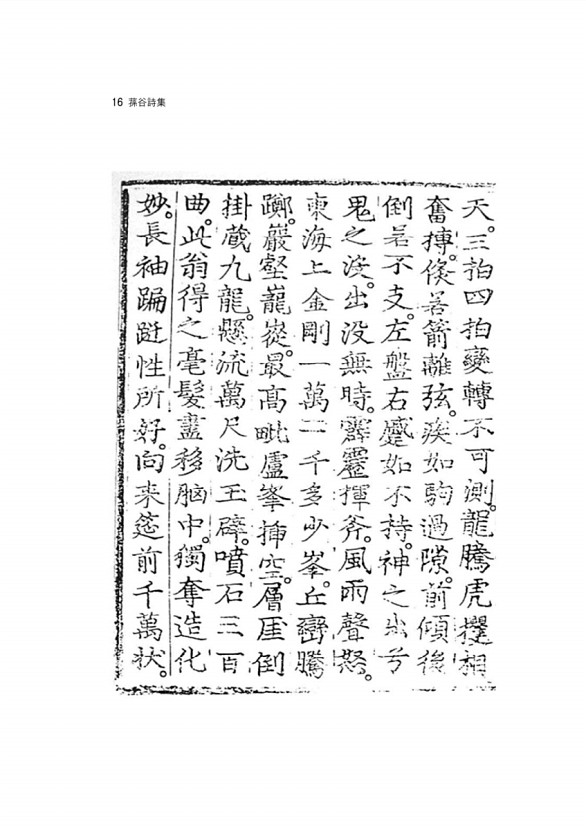 16 蓀谷詩集
天。三拍四拍變轉不可測。龍騰虎攫相
奮搏。倏若箭離弦。疾如駒過隙。前傾後
倒若不支。左盤右蹙如不持。神之出兮
鬼之没。出没無時。霹靂揮斧。風雨聲怒。
東海上金剛一萬二千多少峯。丘巒騰
躑。巖壑巃嵷。最高毗盧峯揷空。層厓倒
掛蔵九龍。懸流萬尺洗玉壁。噴石三百
曲。此翁得之毫髮盡移腦中。獨奪造化
妙。長袖蹁躚性所好。向来筵前千萬状。